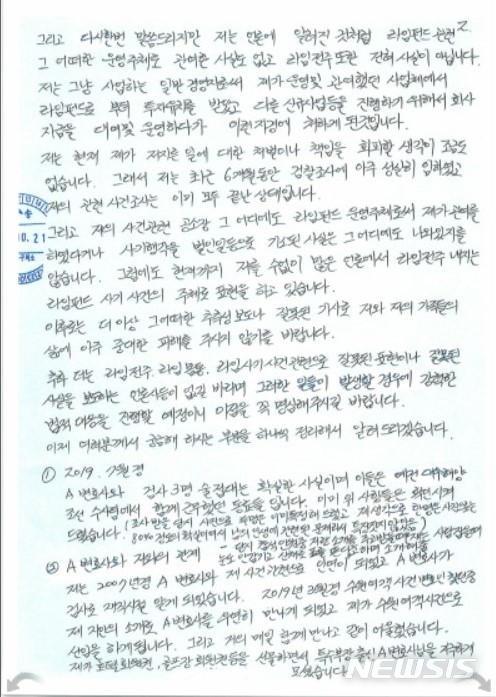 2
그리고 다시한번 말씀드리지만 저는 언론에 알려진 것처럼 라임펀드 관련
그 어떠한 운영주체로 관여한 사실도 없고 라임전주 또한 전혀 사실이 아닙니다.
저는 그냥 사업하는 일반 경영자로써 제가 운영및 관여했던 사업체에서
라임펀드로 부터 투자유치를 받았고 다른 신규사업등을 진행하기 위해서 회사
자금을 대여및 운영하다가 이런지경에 처하게 된것입니다.
저는 현재 제가 저지른 일에 대한 처벌이나 책임을 회피할 생각이 조금도
없습니다. 그래서 저는 최근 6개월동안 검찰조사에 아주 성실히 임하였고
저의 관련 사건조사는 이미 모두 끝난 상태입니다.
그리고 저의 사건관련 공소장 그 어디에도 라임펀드 운영주체로써 제가 관여를
하였다거나 사기행각을 벌인일등으로 기소된 사실은 그 어디에도 나와있지를
않습니다. 그럼에도 현재까지 저를 수없이 많은 언론에서 라임전주 내지는
라임펀드 사기 사건의 주체로 표현을 하고 있습니다.
이후로는 더 이상 그어떠한 추측성 보도나 잘못된 기사로 저와 저의 가족들의
삶에 아주 중대한 피해를 주시지 않기를 바랍니다.
추후 더는 라임전주, 라임몸통, 라임사기사건 관련으로 잘못된 표현이나 잘못된
사실을 보도하는 언론사등이 없길 바라며 그러한 일들이 발생할 경우에 강력한
법적 대응을 진행할 예정이니 이점을 꼭 명심해주시길 바랍니다.
이제 여러분께서 궁금해 하시는 부분을 하나씩 정리해서 알려드리겠습니다.
① 2019. 7월경
A 변호사와 검사 3명 술접대는 확실한 사실이며 이들은 예전 대우해양
조선 수사팀에서 함께 근무했던 동료들입니다.
10.21
② A 변호사와 저와의 관계
저는 2007년경 A 변호사와 제 사건관련으로 인연이 되었고 A 변호사가
검사로 재직시절 알게 되었습니다. 2019년 3월경 수원여객 사건
제 지인의 소개로 A 변호사를 우연히 만나게 되었고 제가 수원여객사건으로
선임을 하게 됩니다. 그리고 거의 매일 함께 만나고 같이 어울렸습니다.
제가 호텔 회원권, 골프장 회원권등을 선물하면서 특수부장 출신 A 변호사님을 지극하게
모셨습니다.
NEWSIS